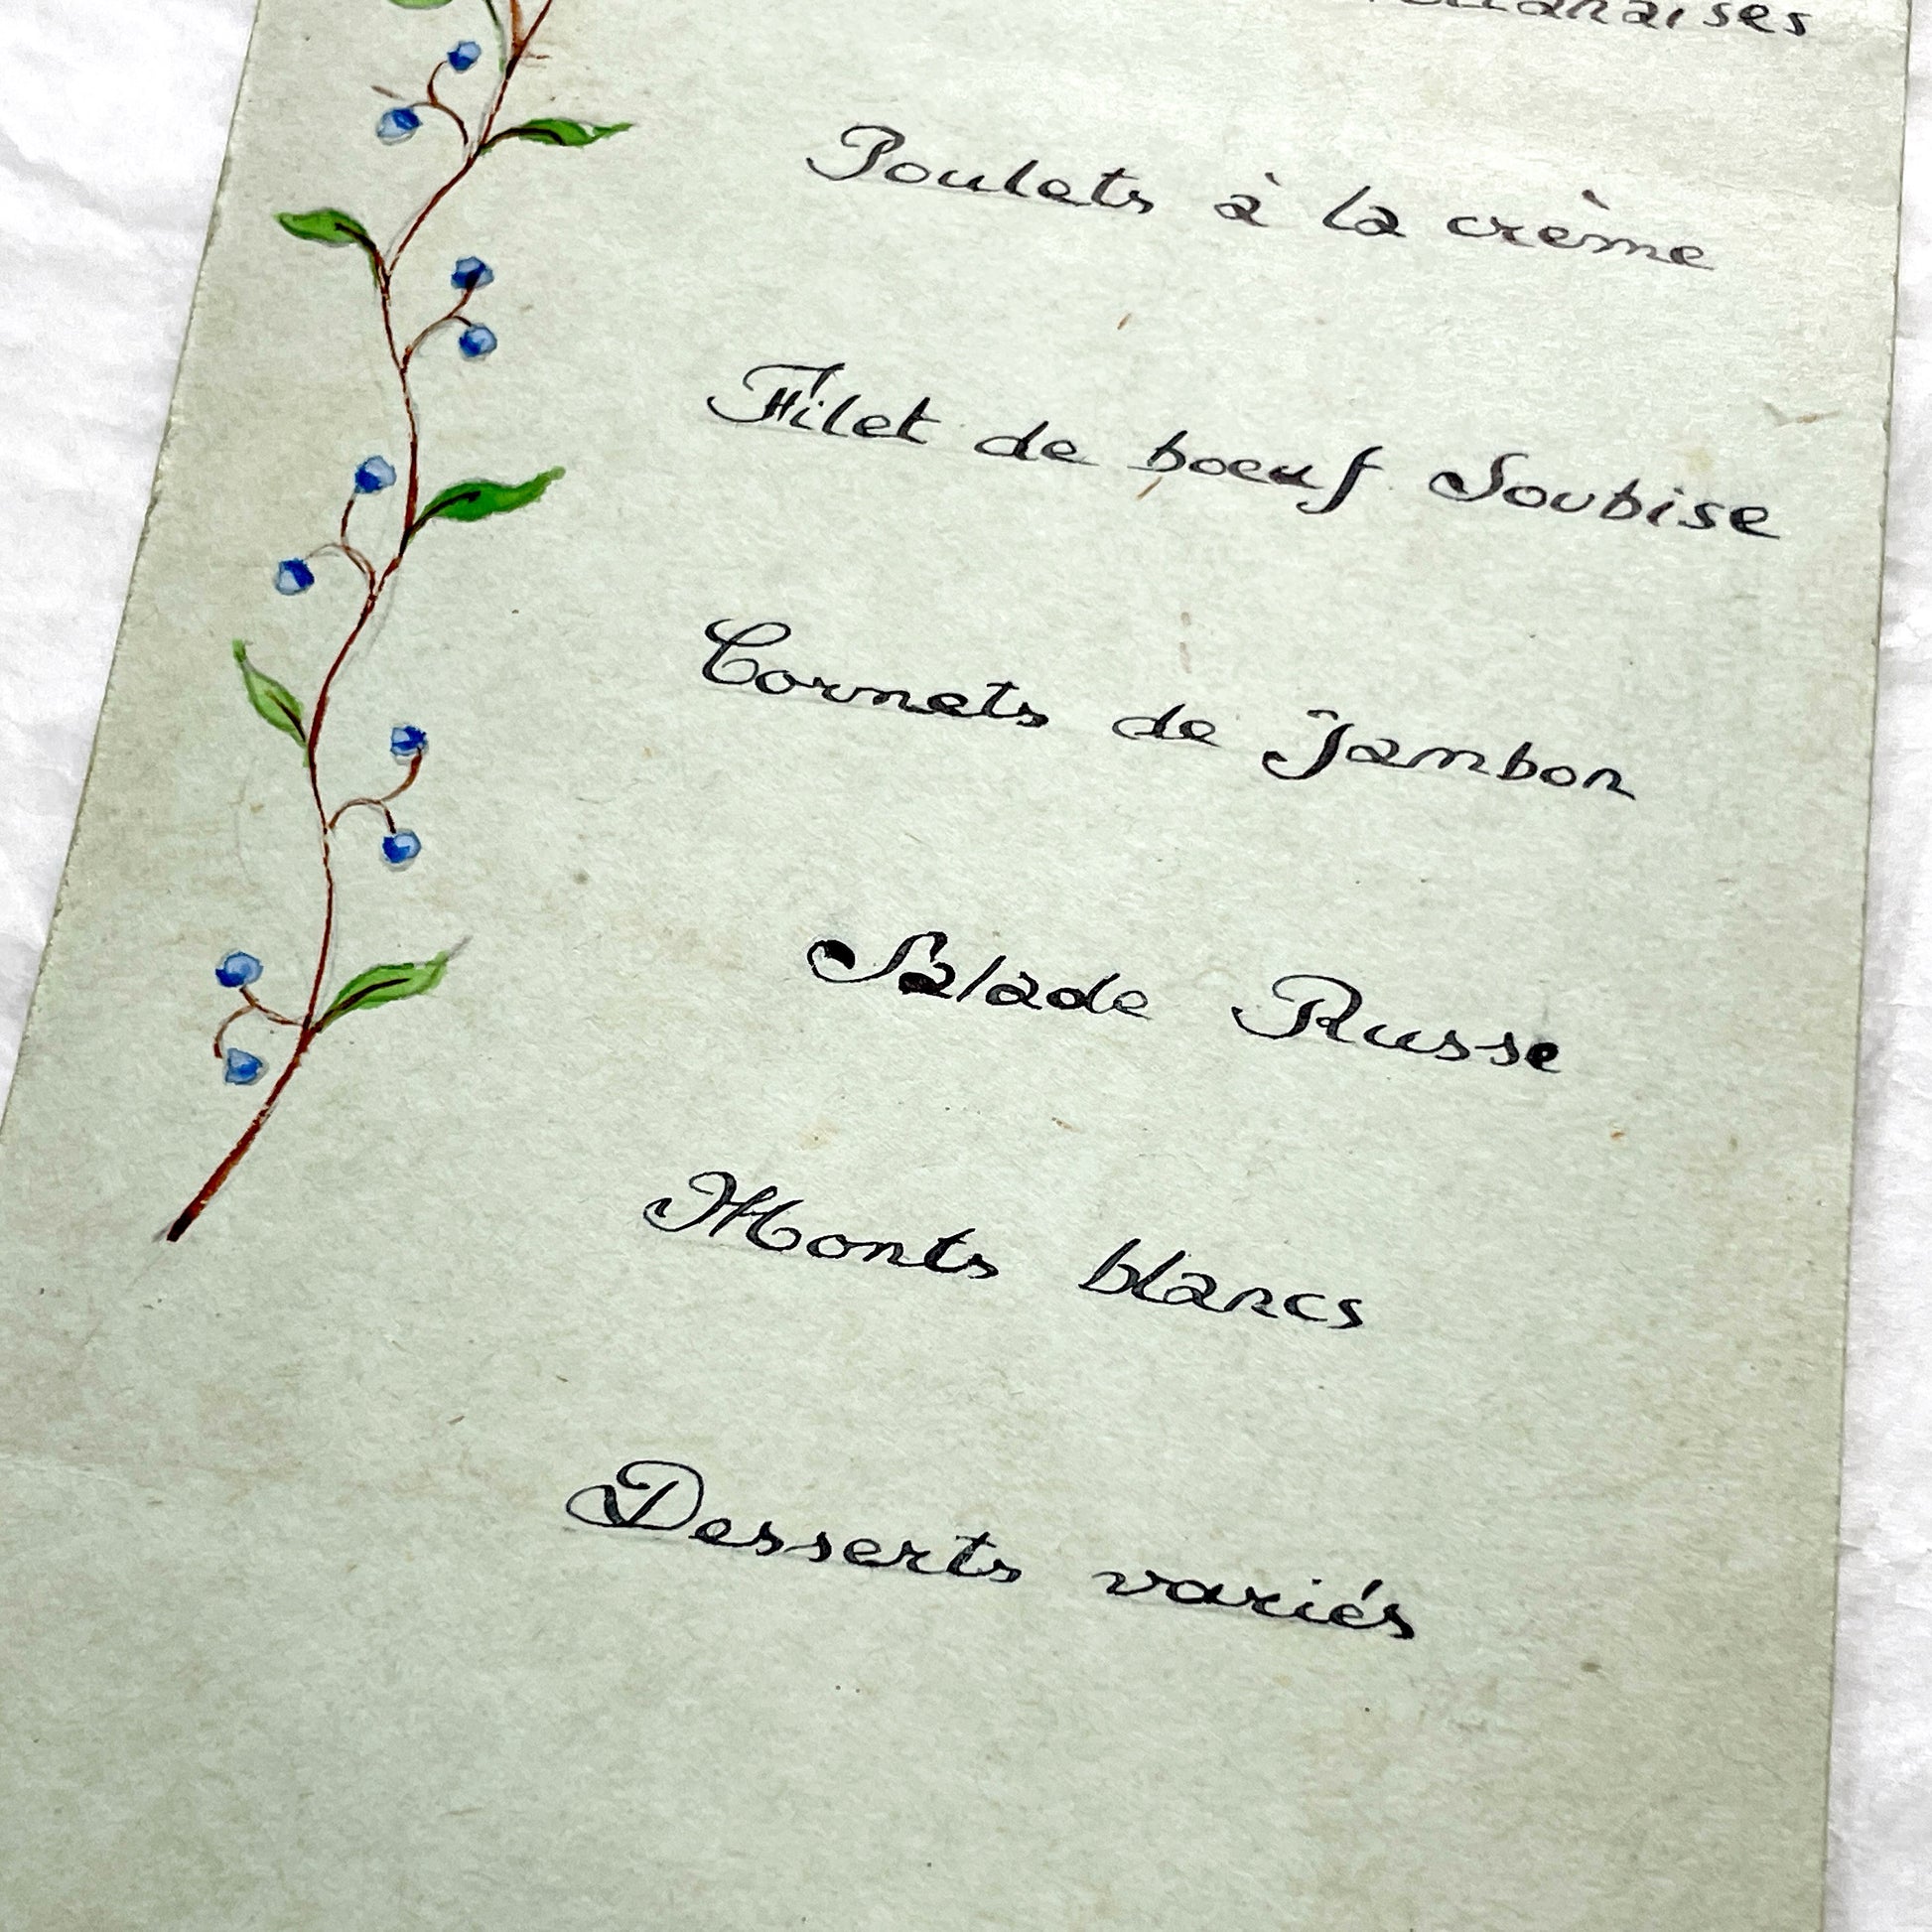 Poulets à la crème
Filet de boeuf Soubise
Cornets de Jambon
Salade Russe
Monts blancs
Desserts variés